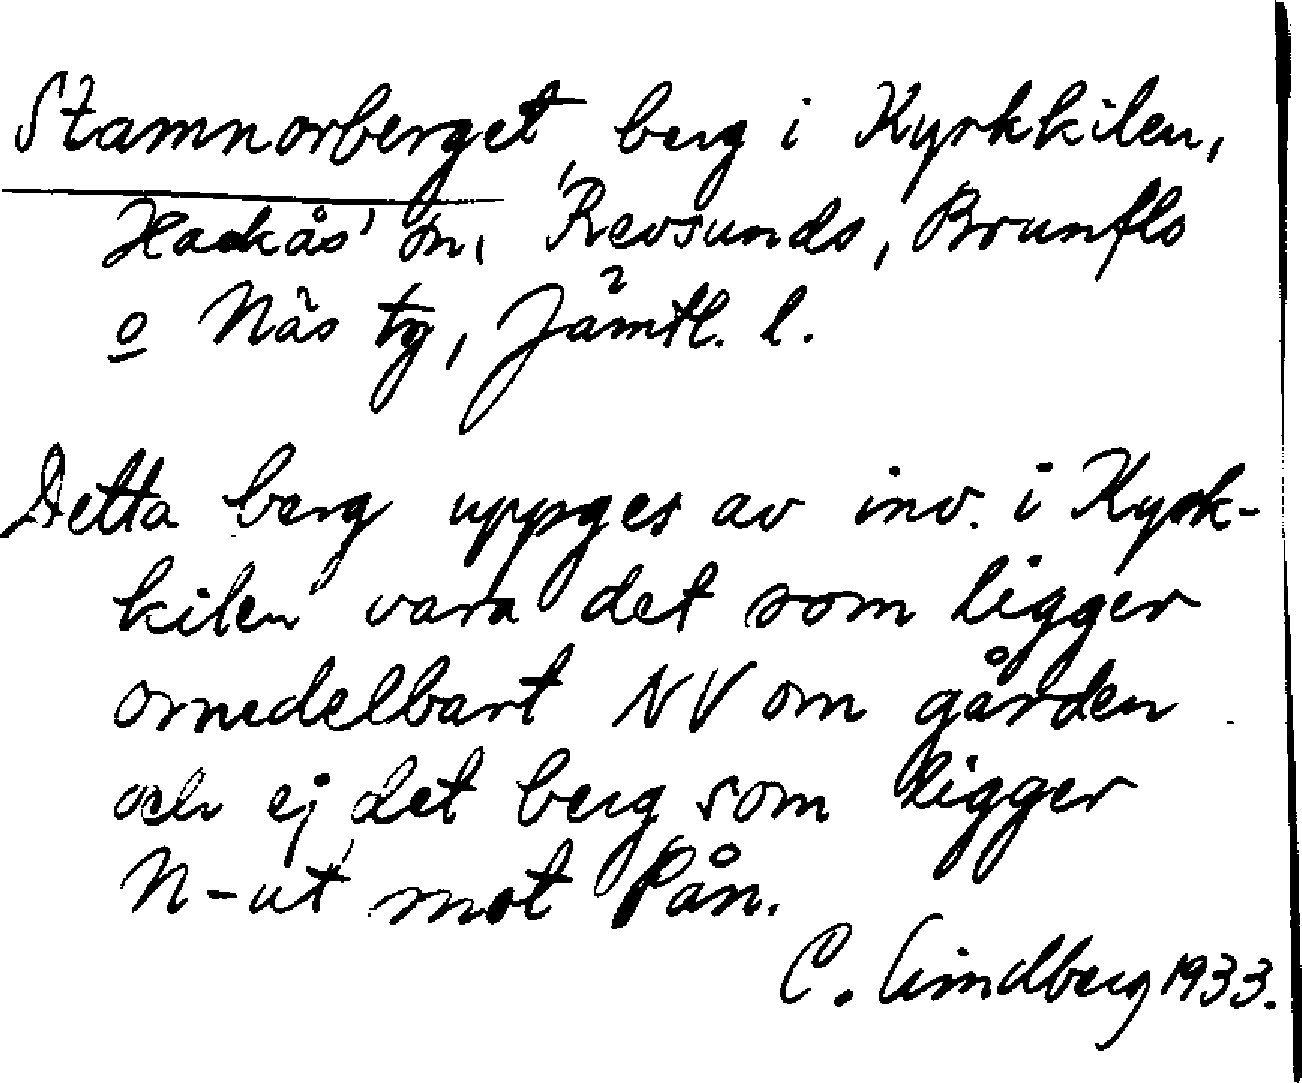 Stamnorberget, berg i Kyrkkilen,
Hackås' sn, Revsunds, Brunflo
o Näs tg, Jämtl. l.
Detta berg uppges av inv. i Kyrk-
kilen vara det som ligger
omedelbart NV om gården
och ej det berg som ligger
N-ut mot Pån.
C. Lindberg 1933.